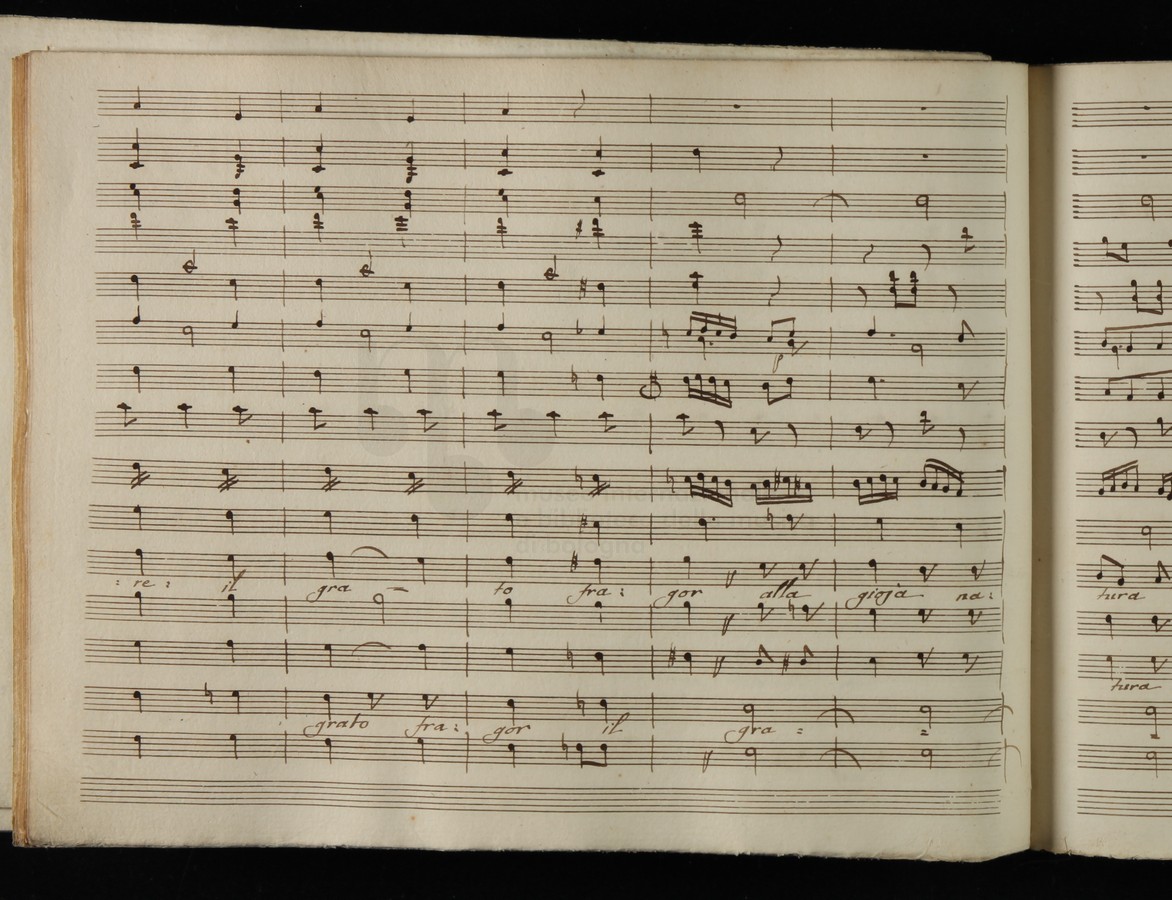 : re : il gra – to fra : gor alla gioja na :
tura
tura
grato fra : gor il gra = =
museo internazionale
e biblioteca della musica
di bologna